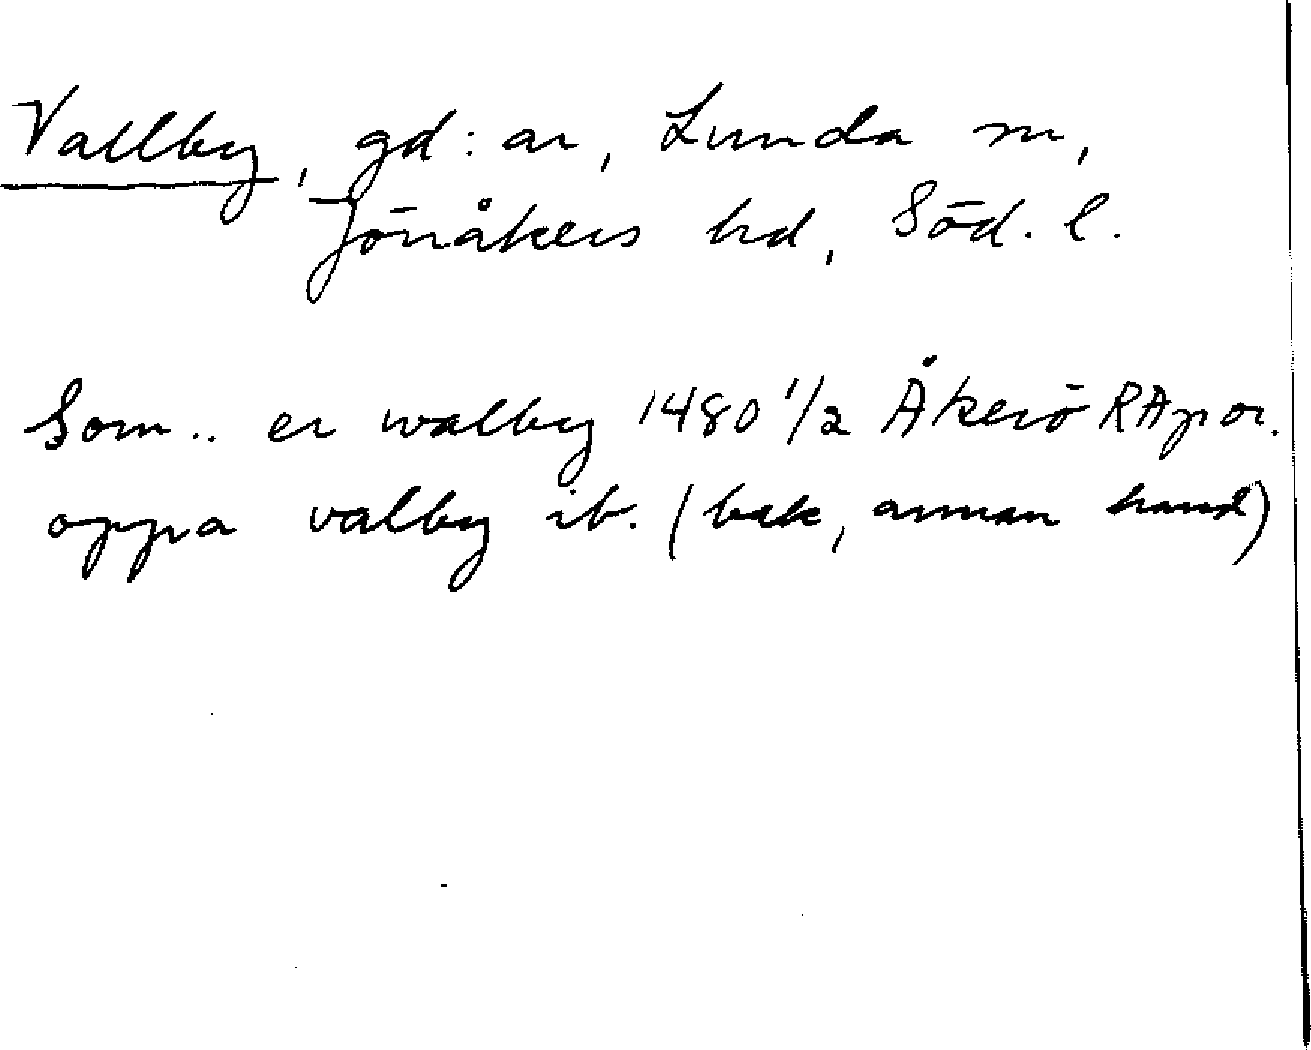 Vallby, gd:ar, Lunda sn,
Jönåkers hd, Söd. l.
Som.. er walby 1480 1/2 Åkerö RApor.
oppa valby ib. (bak, annan hand)